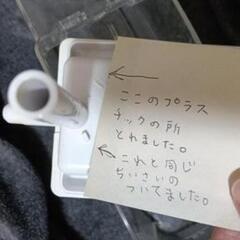 ここのプラス
チックの所
とれました。
これと同じ
ちいさいの
ついてました。